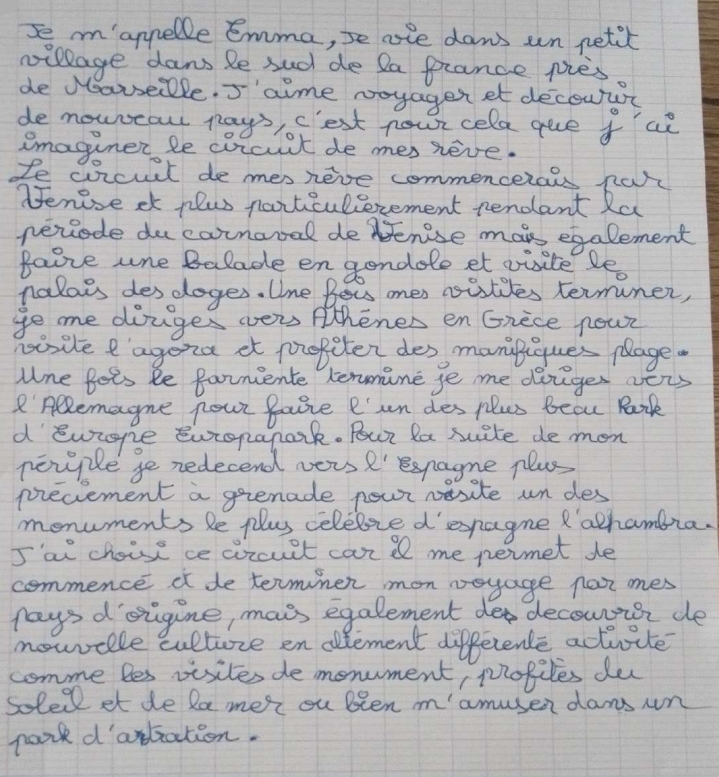 Je m'appelle Emma, je vie dans un petit
village dans le sud de la france près
de Marseille. J'aime voyager et décourir
de nouveau pays, c'est pour cela que j'ai
imaginer le circuit de mes rêve.
Le circuit de mes rêve commencerais par
Venise et plus particulièrement pendant la
période du carnaval de Venise mais également
faire une Balade en gondole et visite le
palais des doges. Une fois mes vistites terminer,
je me diriges vers Athènes en Grèce pour
visite l'agora et profiter des manifiques plage.
Une fois le farniente terminé je me diriges vers
l'Allemagne pour faire l'un des plus beau Park
d'Europe Europapark. Pour la suite de mon
périple je redecend vers l'Espagne plus
préciement à grenade pour visite un des
monuments le plus célèbre d'espagne l'alhambra.
J'ai choisi ce circuit car il me permet de
commencé et de terminer mon voyage par mes
pays d'origine, mais également de decouvrir de
nouvelle culture en aliement différente activité
comme les visites de monument, profités du
soleil et de la mer ou bien m'amuser dans un
park d'atration.